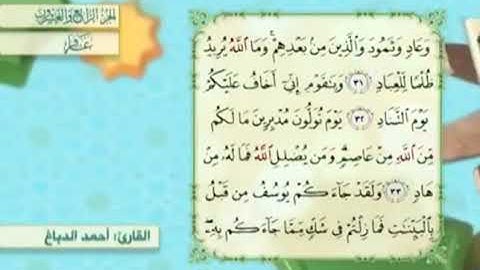 الجزء الرابع والعشرون
غافر
وَعَادٍ وَثَمُودَ وَالَّذِينَ مِنْ بَعْدِهِمْ ۚ وَمَا اللَّهُ يُرِيدُ
ظُلْمًا لِلْعِبَادِ ﴿٣١﴾ وَيَٰقَوْمِ إِنِّي أَخَافُ عَلَيْكُمْ
يَوْمَ التَّنَادِ ﴿٣٢﴾ يَوْمَ تُوَلُّونَ مُدْبِرِينَ مَا لَكُم
مِّنَ اللَّهِ مِنْ عَاصِمٍ ۗ وَمَن يُضْلِلِ اللَّهُ فَمَا لَهُ مِنْ
هَادٍ ﴿٣٣﴾ وَلَقَدْ جَاءَكُمْ يُوسُفُ مِن قَبْلُ
بِالْبَيِّنَٰتِ فَمَا زِلْتُمْ فِي شَكٍّ مِّمَّا جَاءَكُم بِهِ ۖ
القارئ: أحمد الدباغ